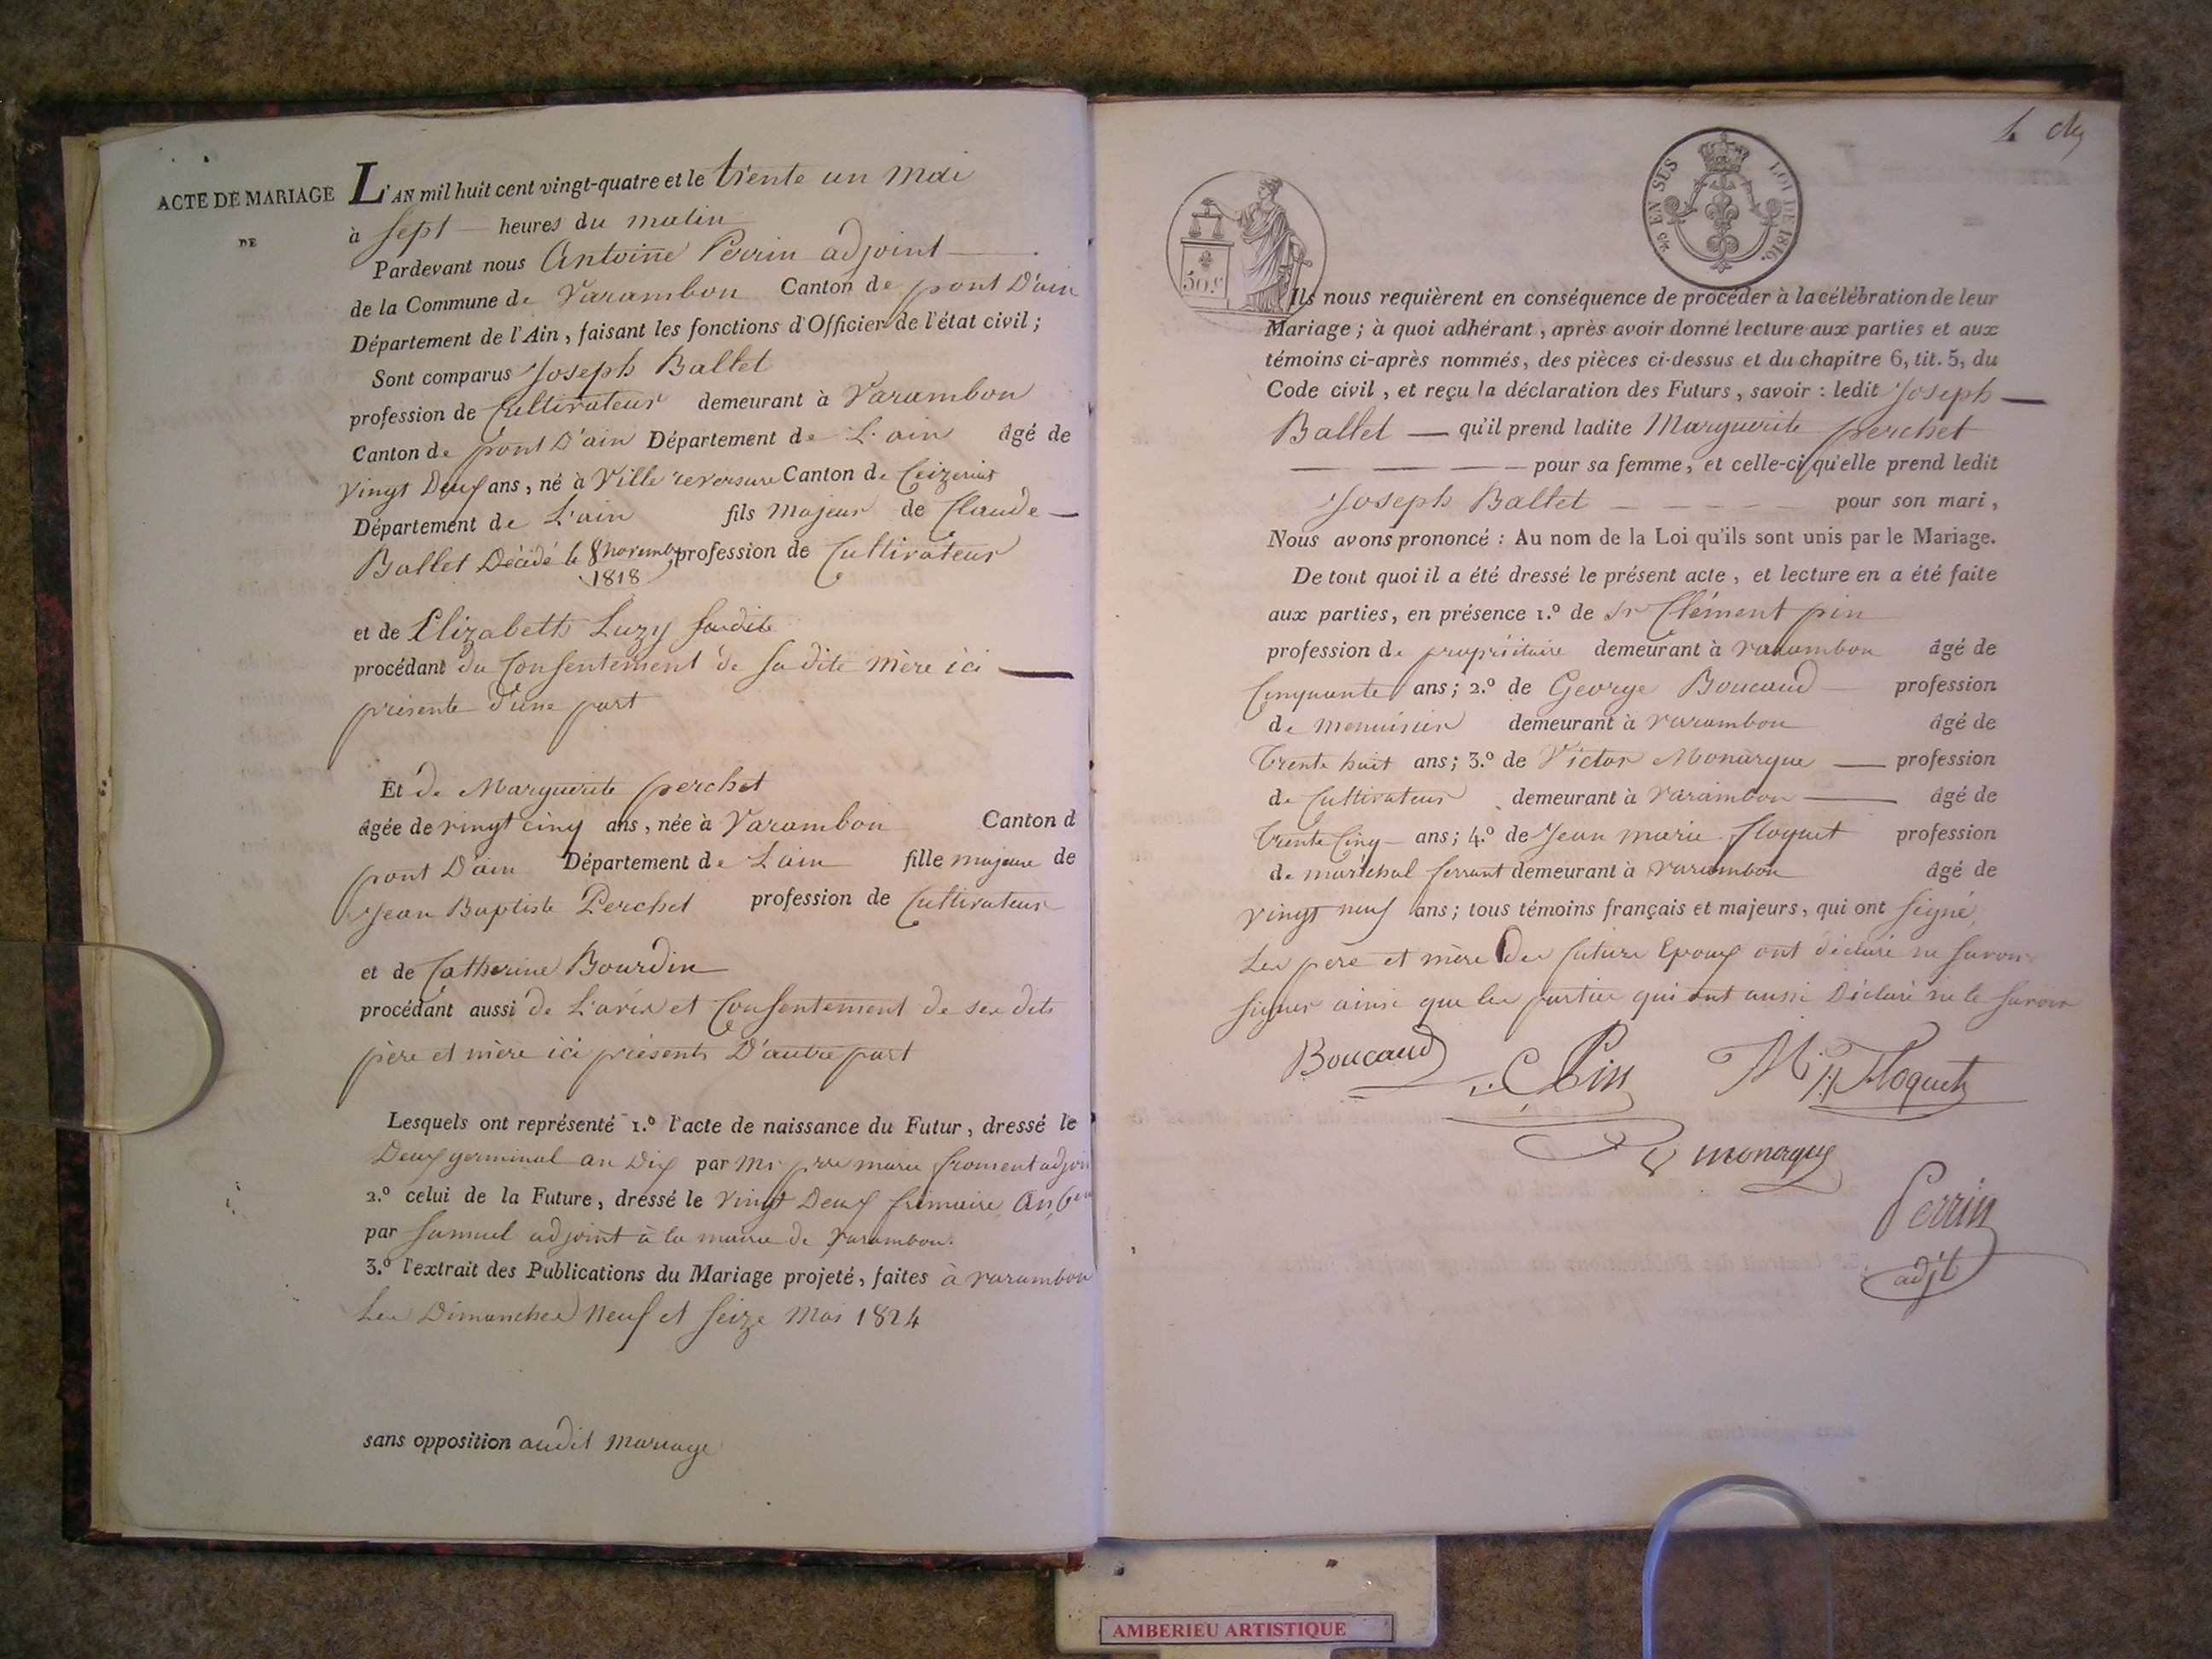 ACTE DE MARIAGE
DE
L'AN mil huit cent vingt-quatre et le trente un mai
à sept heures du matin
Pardevant nous Antoine Perrin adjoint
de la Commune de Varambon Canton de pont D'ain
Département de l'Ain, faisant les fonctions d'Officier de l'état civil;
Sont comparus Joseph Ballet
profession de Cultivateur demeurant à Varambon
Canton de pont D'ain Département de L'ain âgé de
vingt Deux ans, né à Ville reversure Canton de Ceizeriat
Département de L'ain fils majeur de Claude
Ballet Décédé le 8 novembre 1818, profession de Cultivateur
et de Elizabeth Luzy
procédant du Consentement de sa dite mère ici
présente d'une part
Et de Marguerite perchet
âgée de vingt cinq ans, née à Varambon Canton d
pont D'ain Département de L'ain fille majeure de
Jean Baptiste Perchet profession de Cultivateur
et de Catherine Bourdin
procédant aussi de L'avis et Consentement de ses dits
père et mère ici présents D'autre part
Lesquels ont représenté 1.º l'acte de naissance du Futur, dressé le
Deux germinal an Dix par Mr pre marie froment adjoin
2.º celui de la Future, dressé le vingt Deux frimaire An
par Samuel adjoint à la mairie de Varambon.
3.º l'extrait des Publications du Mariage projeté, faites à varambon
Les Dimanches Neuf et Seize Mai 1824
sans opposition audit Mariage
EN SUS
LOI DE 1816.
50.c
Ils nous requièrent en conséquence de procéder à la célébration de leur
Mariage; à quoi adhérant, après avoir donné lecture aux parties et aux
témoins ci-après nommés, des pièces ci-dessus et du chapitre 6, tit. 5, du
Code civil, et reçu la déclaration des Futurs, savoir : ledit Joseph
Ballet qu'il prend ladite Marguerite perchet
pour sa femme, et celle-ci qu'elle prend ledit
Joseph Ballet pour son mari,
Nous avons prononcé : Au nom de la Loi qu'ils sont unis par le Mariage.
De tout quoi il a été dressé le présent acte, et lecture en a été faite
aux parties, en présence 1.º de Sr Clément pin
profession de propriétaire demeurant à varambon âgé de
Cinquante ans; 2.º de George Boucaud profession
de menuisier demeurant à varambon âgé de
Trente huit ans; 3.º de Victor Monarque profession
de Cultivateur demeurant à varambon âgé de
Trente Cinq ans; 4.º de Jean marie floquet profession
de maréchal ferrant demeurant à varambon âgé de
vingt neuf ans; tous témoins français et majeurs, qui ont signé,
Les père et mère des futurs Epoux ont déclaré ne savoir
signer ainsi que les parties qui ont aussi Déclaré ne le savoir
Boucaud C Pin Floquet
monarque
Perrin
adjt
AMBERIEU ARTISTIQUE